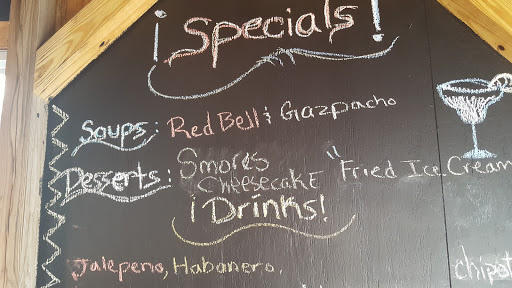 ¡Specials!
Soups: Red Bell & Gazpacho
Desserts: Smores Cheesecake "Fried Ice Cream
¡Drinks!
Jalepeno, Habanero,
chipot